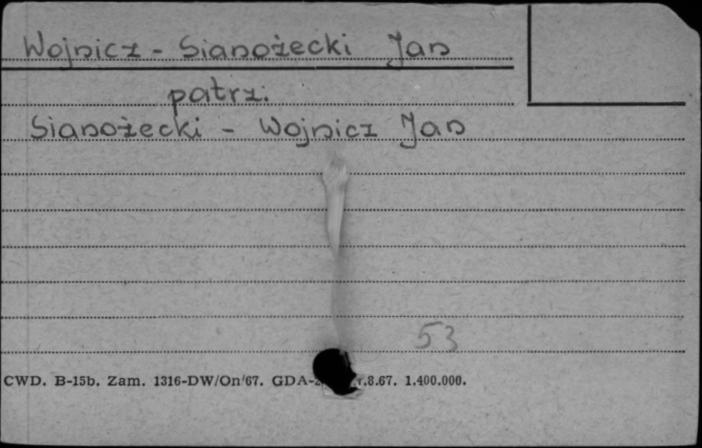 Wojnicz - Sianożecki Jan
patrz:
Sianożecki - Wojnicz Jan
53
CWD. B-15b. Zam. 1316-DW/On/67. GDA- .8.67. 1.400.000.